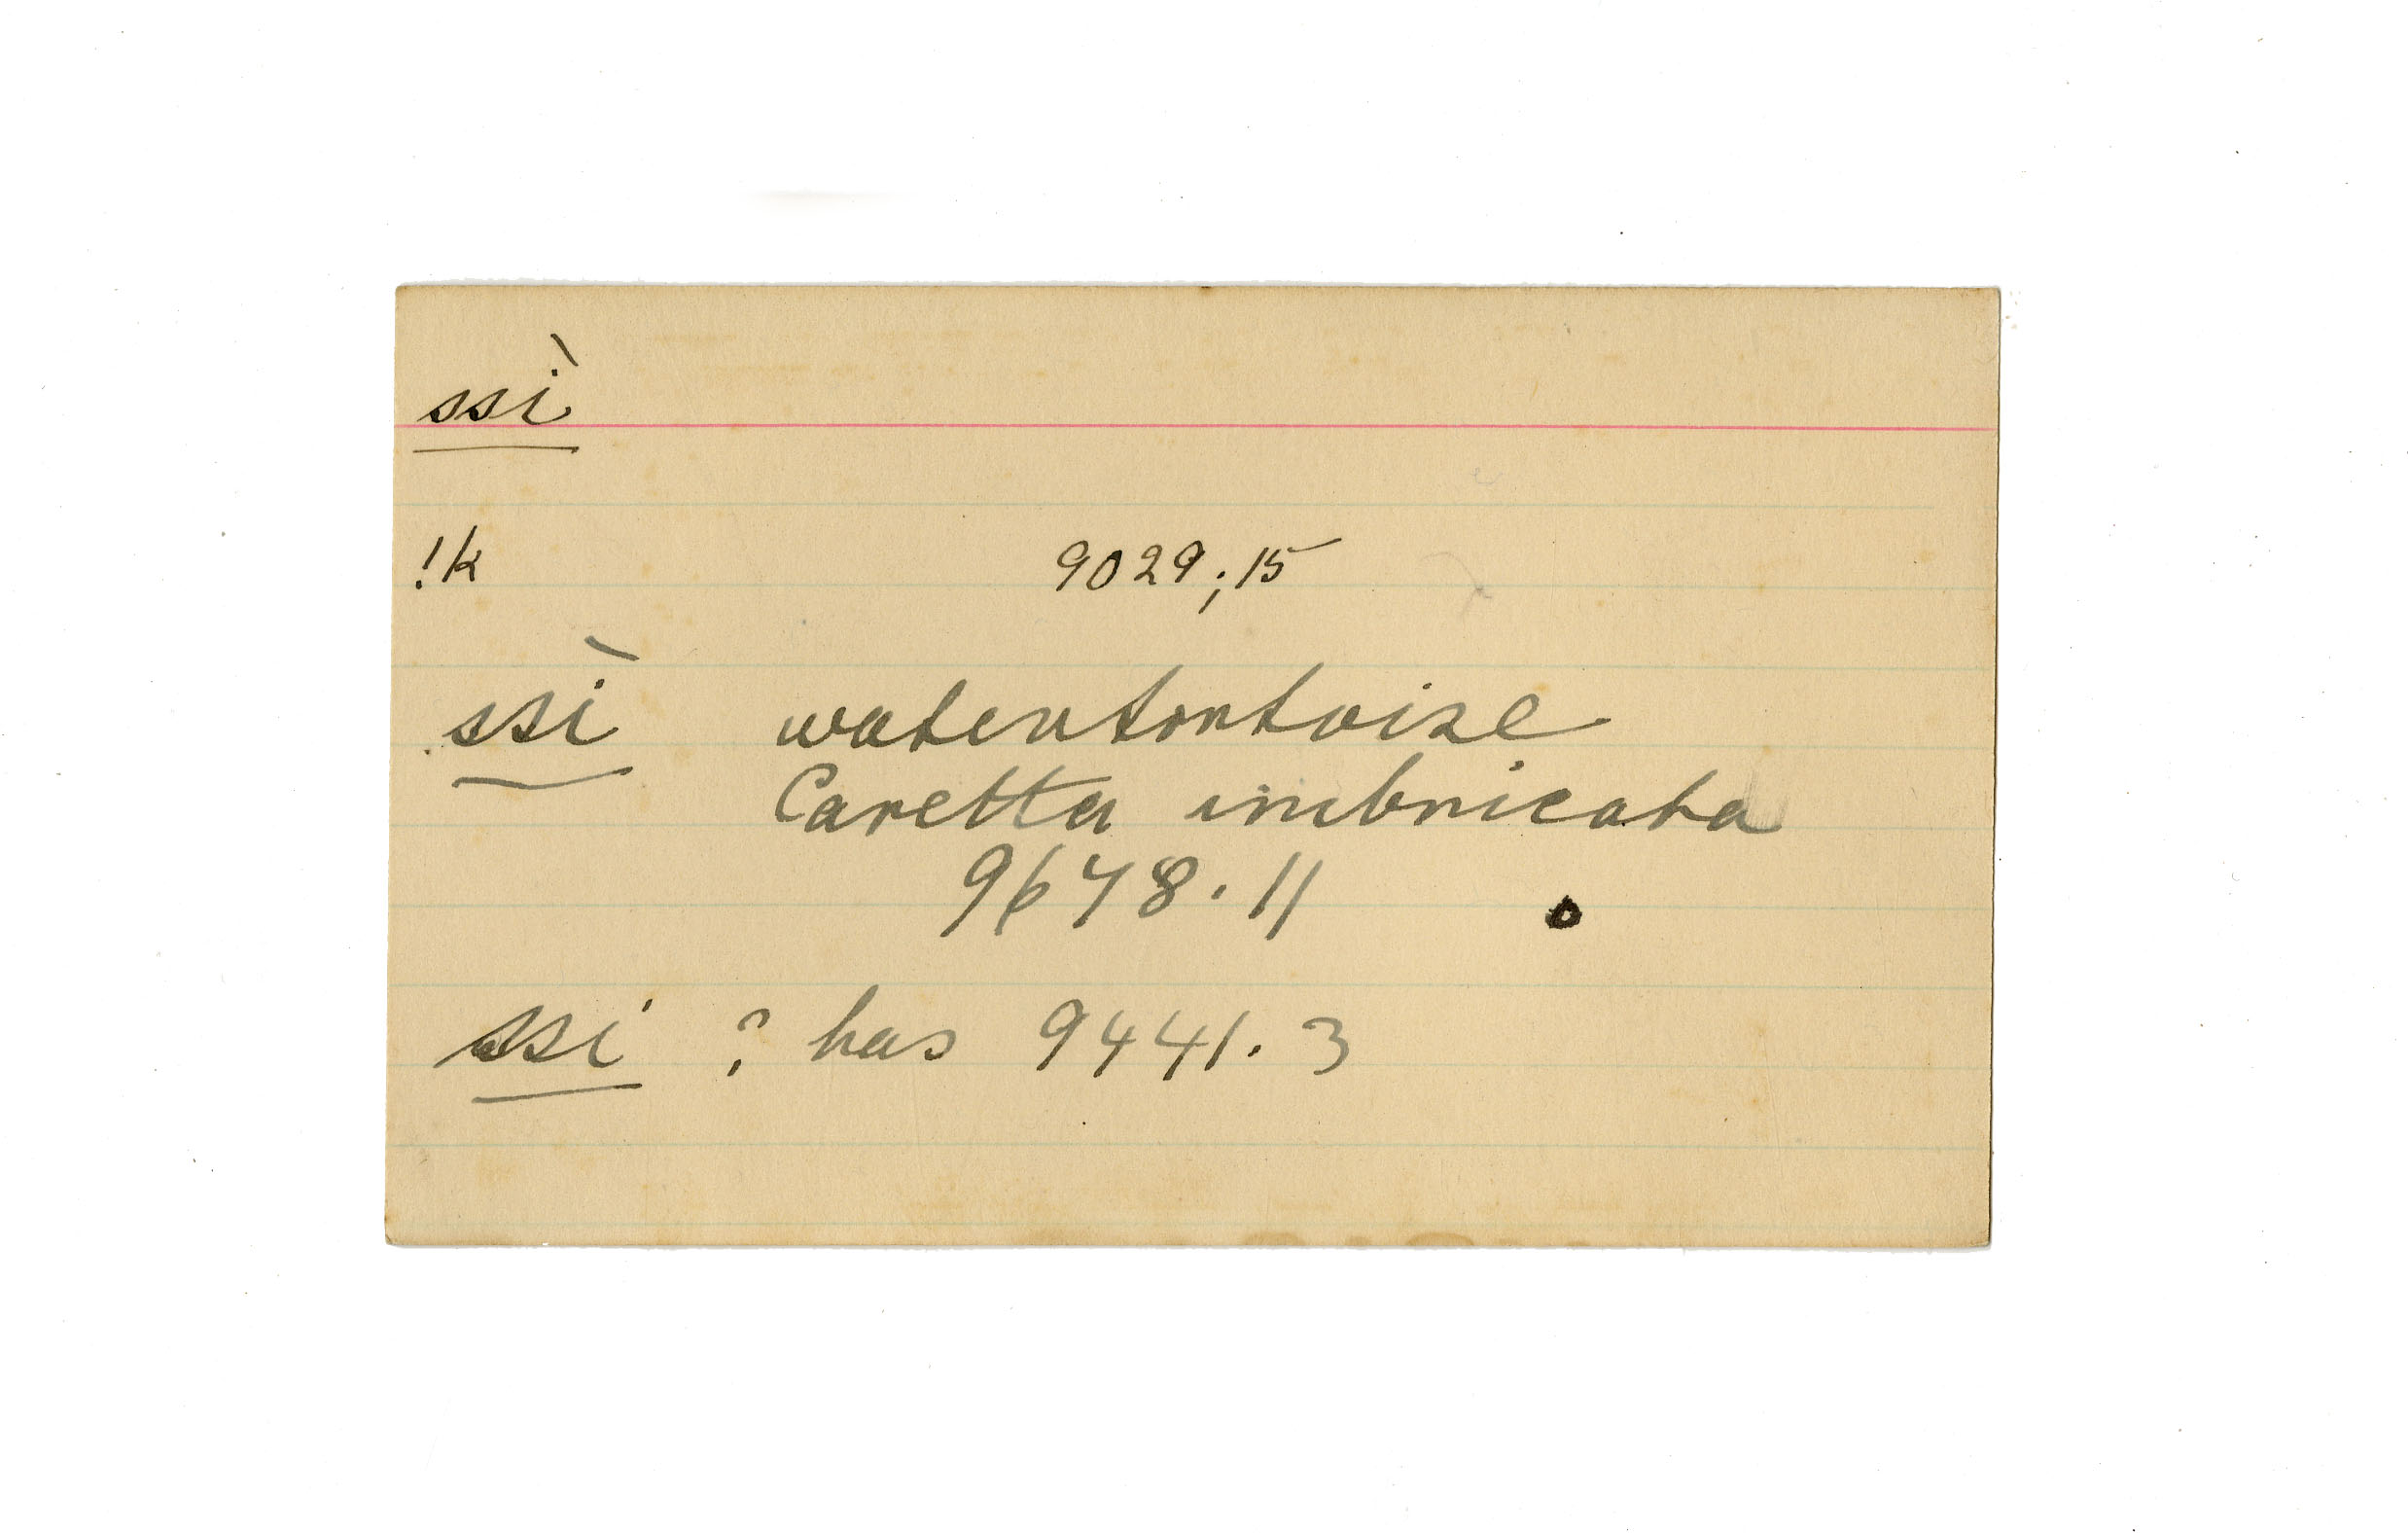 ssì
!k 9029;15
ssì watertortoise
Caretta imbricata
9678.11
ssi ? has 9441.3